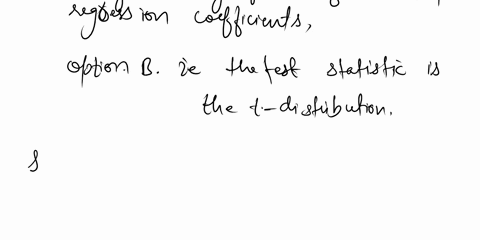 regression coefficients,
option B. ie the test statistic is
the t-distribution.
S